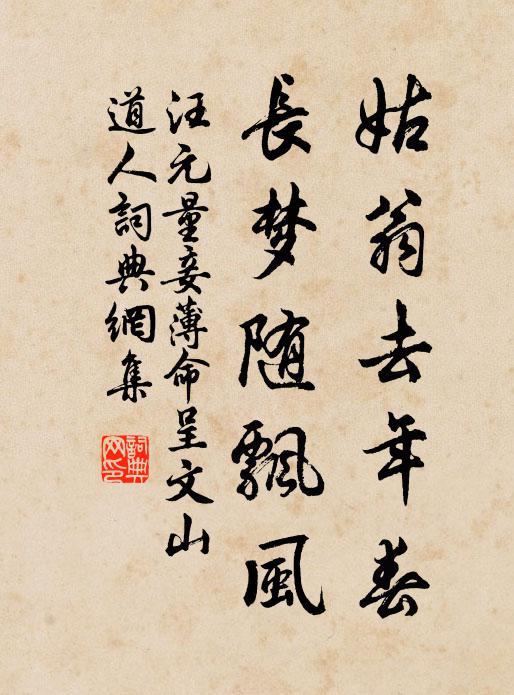 姑翁去年春
長梦随飄風
汪元量妾薄命呈文山
道人詞典網集
詞典网印